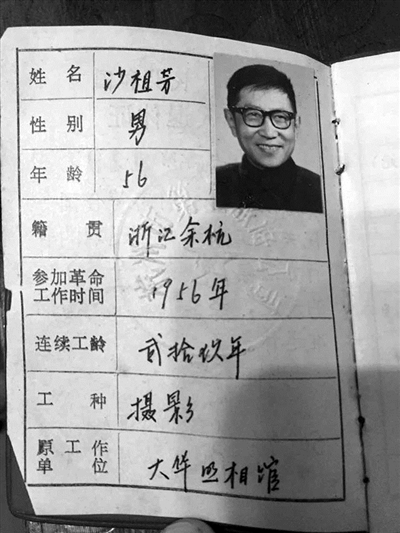 姓名 沙祖芳
性别 男
年龄 56
籍贯 浙江余杭
参加革命
工作时间 1956年
连续工龄 贰拾玖年
工种 摄影
原工作
单位 大华照相馆